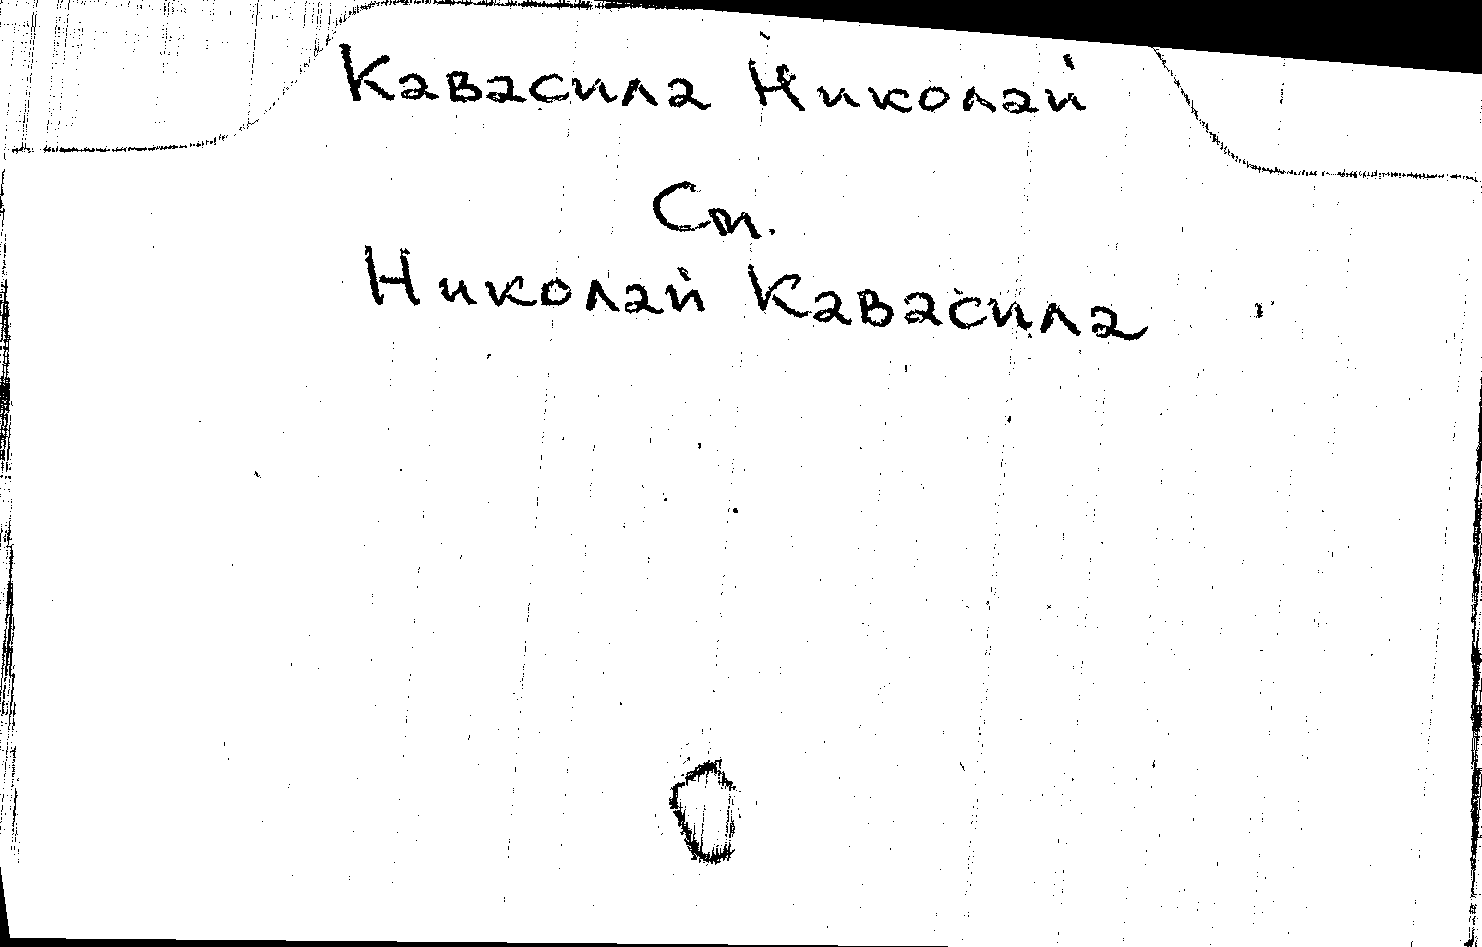 Кавасила Николай
См.
Николай Кавасила